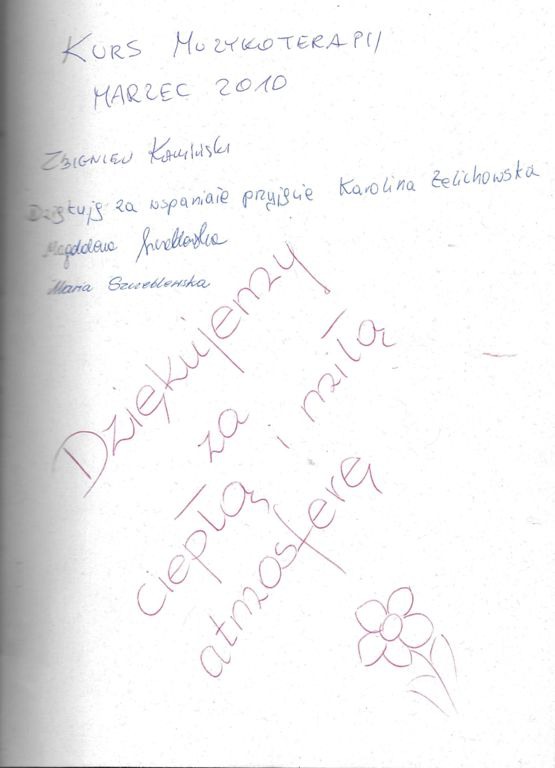 KURS MUZYKOTERAPII
MARZEC 2010
ZBIGNIEW Kamiński
Dziękuję za wspaniałe przyjęcie Karolina Żelichowska
Magdalena
Maria Szczeblewska
Dziękujemy
za
ciepłą i miłą
atmosferę